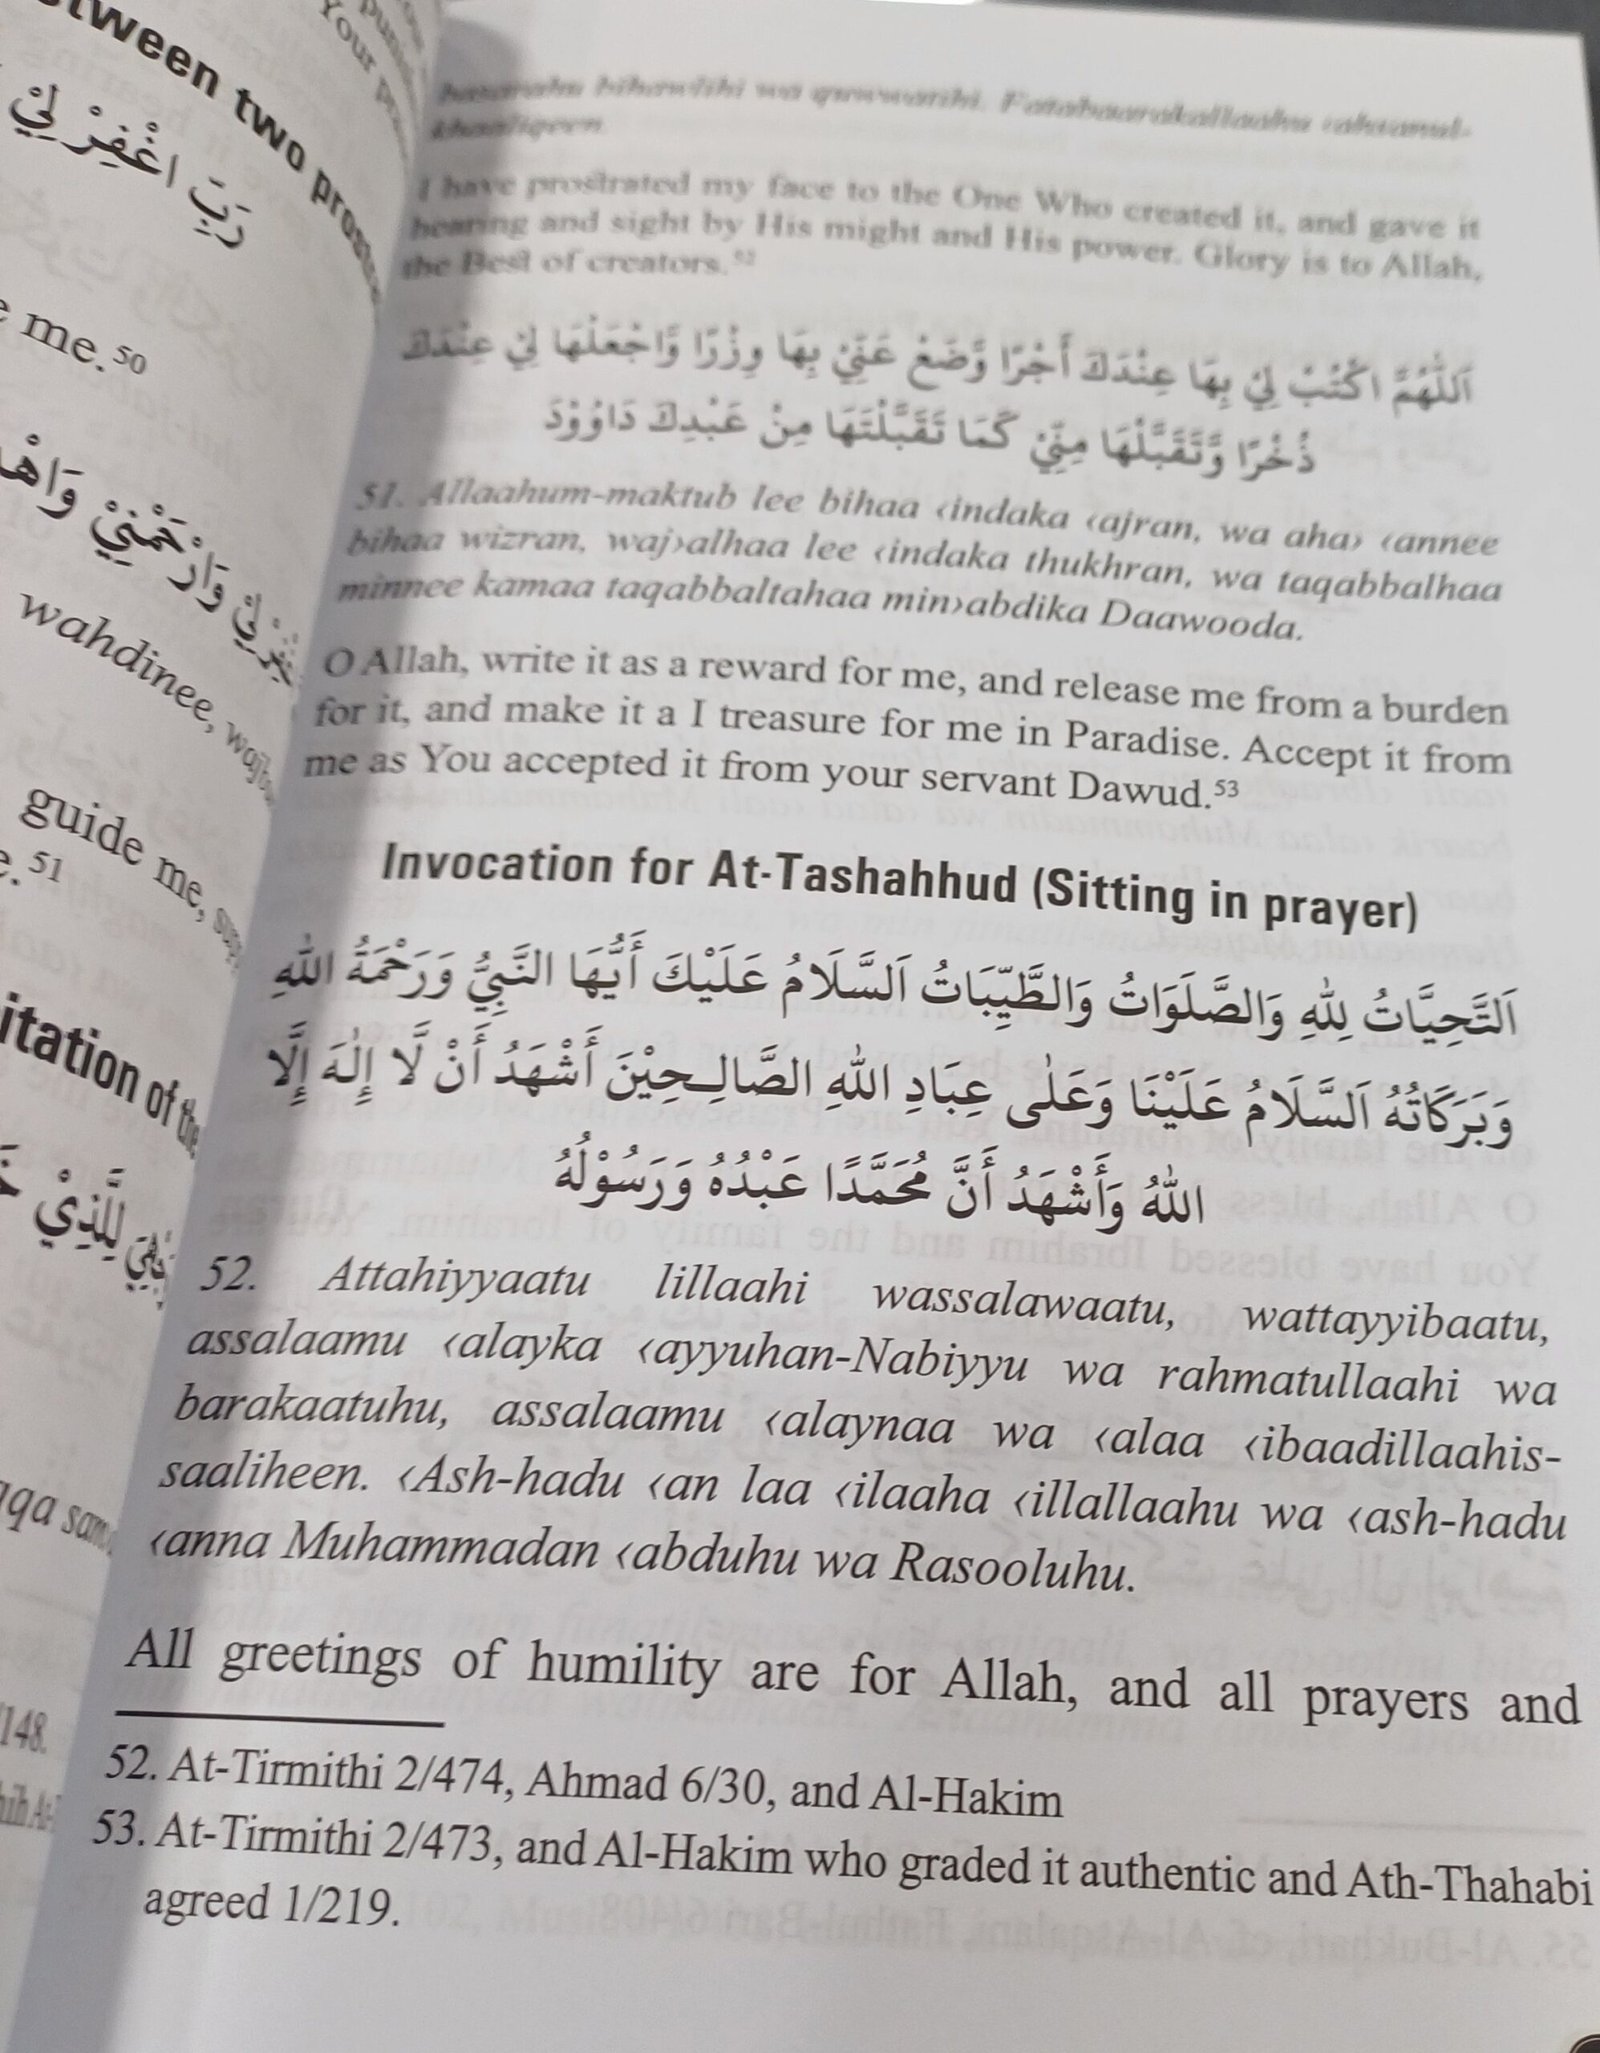 tween two prost
رَبِّ اغْفِرْ لِيْ
me.50
وَارْحَمْنِيْ
wahdinee,
guide me,
e.51
itation of the
لِلَّذِيْ
qqa sam
/148.
bihawlihi wa quwwatihi. Fatabaarakallaahu ‹ahsanul-
khaaliqeen.
I have prostrated my face to the One Who created it, and gave it
hearing and sight by His might and His power. Glory is to Allah,
the Best of creators.52
اَللّٰهُمَّ اكْتُبْ لِيْ بِهَا عِنْدَكَ أَجْرًا وَّضَعْ عَنِّيْ بِهَا وِزْرًا وَّاجْعَلْهَا لِيْ عِنْدَكَ
ذُخْرًا وَّتَقَبَّلْهَا مِنِّيْ كَمَا تَقَبَّلْتَهَا مِنْ عَبْدِكَ دَاوُوْدَ
51. Allaahum-maktub lee bihaa ‹indaka ‹ajran, wa aha› ‹annee
bihaa wizran, waj›alhaa lee ‹indaka thukhran, wa taqabbalhaa
minnee kamaa taqabbaltahaa min›abdika Daawooda.
O Allah, write it as a reward for me, and release me from a burden
for it, and make it a I treasure for me in Paradise. Accept it from
me as You accepted it from your servant Dawud.53
Invocation for At-Tashahhud (Sitting in prayer)
اَلتَّحِيَّاتُ لِلّٰهِ وَالصَّلَوَاتُ وَالطَّيِّبَاتُ اَلسَّلَامُ عَلَيْكَ أَيُّهَا النَّبِيُّ وَرَحْمَةُ اللّٰهِ
وَبَرَكَاتُهُ اَلسَّلَامُ عَلَيْنَا وَعَلٰى عِبَادِ اللّٰهِ الصَّالِـحِيْنَ أَشْهَدُ أَنْ لَّا إِلٰهَ إِلَّا
اللّٰهُ وَأَشْهَدُ أَنَّ مُحَمَّدًا عَبْدُهُ وَرَسُوْلُهُ
52. Attahiyyaatu lillaahi wassalawaatu, wattayyibaatu,
assalaamu ‹alayka ‹ayyuhan-Nabiyyu wa rahmatullaahi wa
barakaatuhu, assalaamu ‹alaynaa wa ‹alaa ‹ibaadillaahis-
saaliheen. ‹Ash-hadu ‹an laa ‹ilaaha ‹illallaahu wa ‹ash-hadu
‹anna Muhammadan ‹abduhu wa Rasooluhu.
All greetings of humility are for Allah, and all prayers and
52. At-Tirmithi 2/474, Ahmad 6/30, and Al-Hakim
53. At-Tirmithi 2/473, and Al-Hakim who graded it authentic and Ath-Thahabi
agreed 1/219.